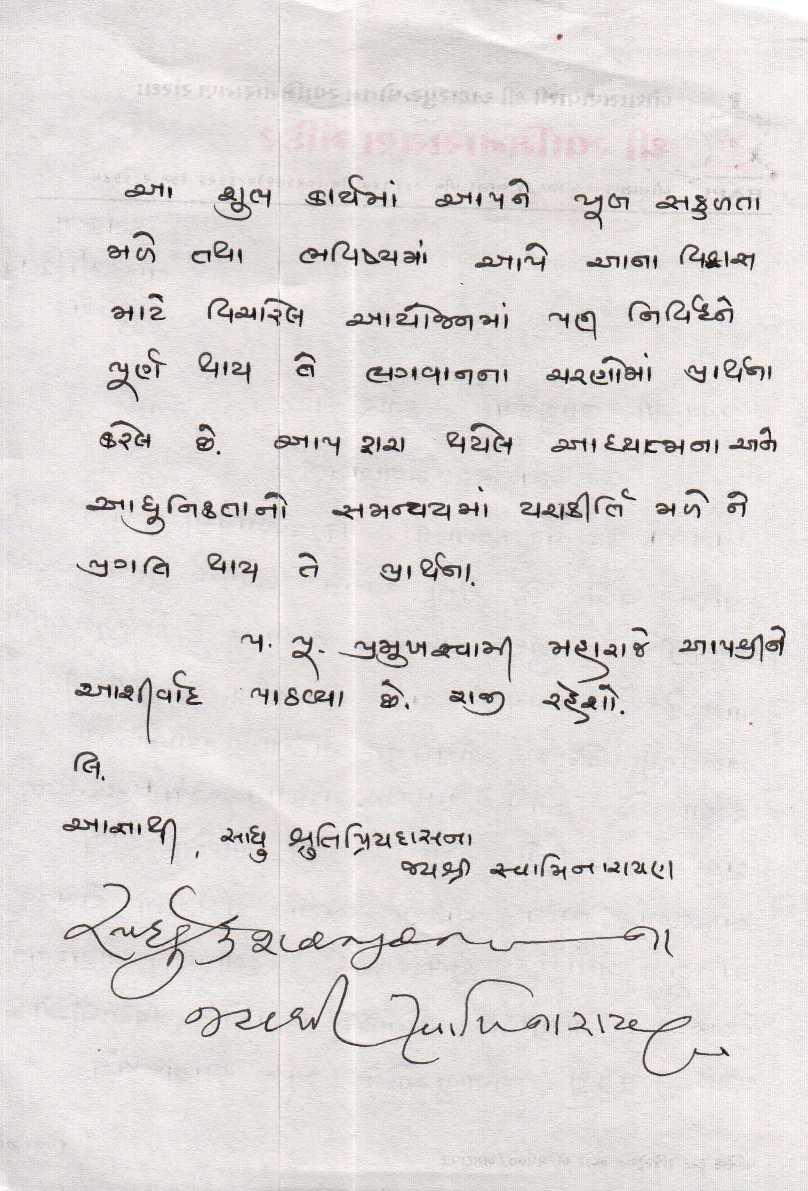 આ શુભ કાર્યમાં આપને ખૂબ સફળતા
મળે તથા ભવિષ્યમાં આપે આના વિકાસ
માટે વિચારેલ આયોજનમાં પણ નિર્વિઘ્ને
પૂર્ણ થાય તે ભગવાનના ચરણોમાં પ્રાર્થના
કરેલ છે. આપ દ્વારા થયેલ આધ્યાત્મના અને
આધુનિકતાનો સમન્વયમાં યશકીર્તિ મળે ને
પ્રગતિ થાય તે પ્રાર્થના.
પ. પૂ. પ્રમુખસ્વામી મહારાજે આપશ્રીને
આશીર્વાદ પાઠવ્યા છે. રાજી રહેશો.
લિ.
આજ્ઞાથી, સાધુ શ્રુતિપ્રિયદાસના
જયશ્રી સ્વામિનારાયણ
સાધુ ના
જયશ્રી સ્વામિનારાયણ